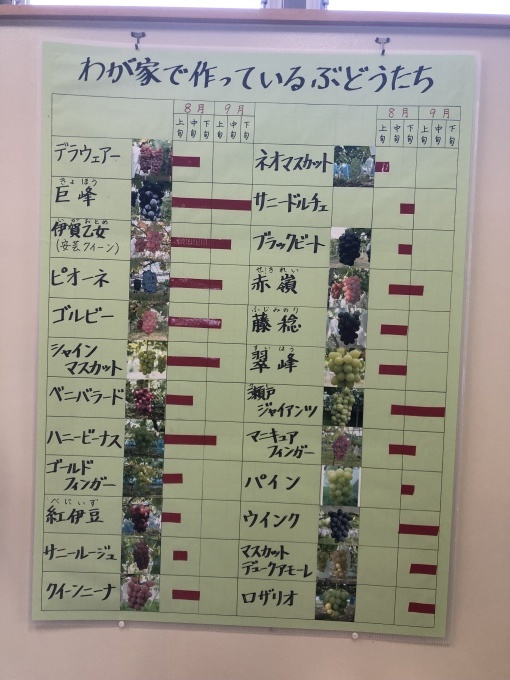 わが家で作っているぶどうたち
8月 9月
上旬 中旬 下旬 上旬 中旬 下旬
8月 9月
上旬 中旬 下旬 上旬 中旬 下旬
デラウェアー
きょほう
巨峰
いがおとめ
伊賀乙女
(安芸クイーン)
ピオーネ
ゴルビー
シャイン
マスカット
ベニバラード
ハニービーナス
ゴールド
フィンガー
べにいず
紅伊豆
サニールージュ
クイーンニーナ
ネオマスカット
サニードルチェ
ブラックビート
せきれい
赤嶺
ふじみのり
藤稔
すいほう
翠峰
瀬戸
ジャイアンツ
マニキュア
フィンガー
パイン
ウインク
マスカット
デュークアモーレ
ロザリオ